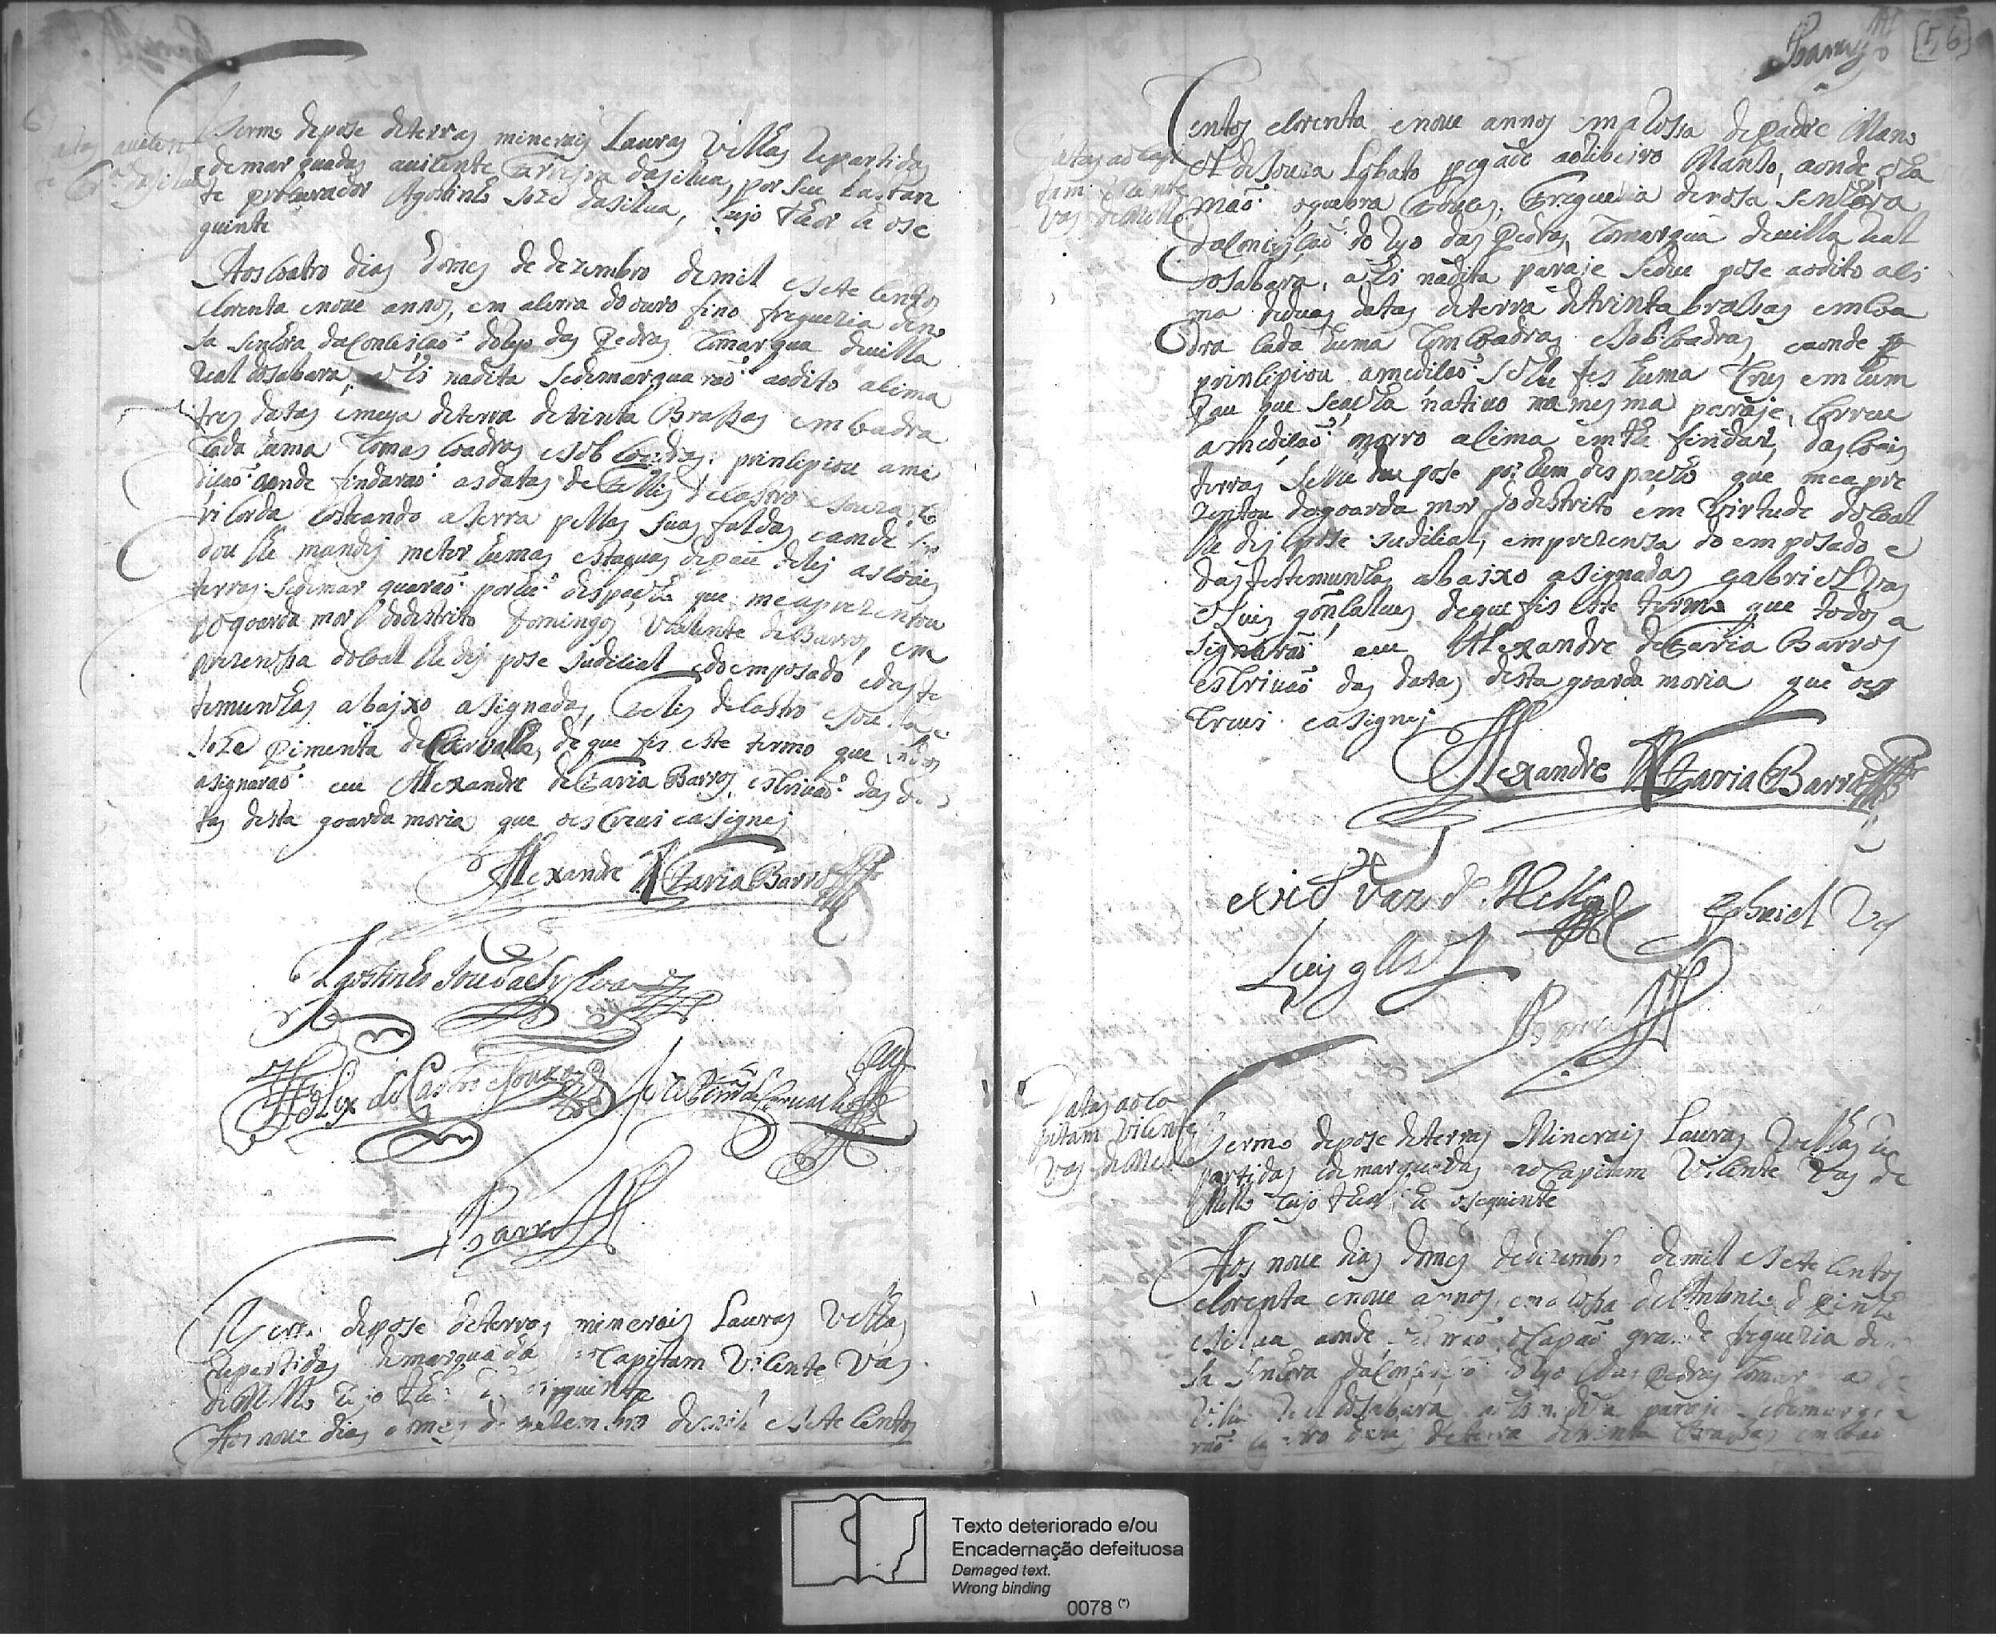 Termo de pose de terras minerais Lauras Velhas Repartidas
e demarquadas a vicente Correyra da silua, por seu bastan
te procurador Agostinho Joze da silua, Cujo theor he o se
guinte
Aos coatro dias do mes de dezembro de mil e sete centos
e corenta e noue annos, em a serra do ouro fino freguezia de no
sa senhora da Conceicaõ do Ryo das Pedras Comarqua de uilla
Real do sabara, ahi na dita se demarquaraõ ao dito asima
tres datas e meya de terra de trinta Brassas em coadra
Cada huma
principiou a me
dicaõ aonde findaraõ as datas de Felis de Castro e Souza
costeando a serra pellas suas faldas e aonde
lhe mandej meter humas estaquas de pau
terras se demarquaraõ por hũ despacho que me aprezentou
do goarda mor do destrito Domingos Vicente de Barros, em
prezensa do coal lhe dej pose Judicial e do emposado e das te
temunhas abajxo asignadas, Felis de Castro e Souza, e
Joze Pimenta de Carualho, de que fis este termo que todos
asignaraõ eu Alexandre de Faria Barros, escriuaõ das da
tas desta goarda moria que o escreui e asignej
Alexandre de Faria Barros
Agostinho Joze da Sylva
Felix de Castro e Souza
Barros
Termo de pose de terras minerais Lauras Velhas
Repartidas e demarquadas ao Capitam Vicente Vas
de Mello Cujo theor he o seguinte
Aos noue dias do mes de dezembro de mil e sete centos
Barros
56
Datas ao Capi
tam Vicente
Vas de Mello
centos e corenta e noue annos em a Rossa do padre Mano
el de Souza Lobato pegado ao Ribeiro Manso, aonde cha
maõ o quebra Freguezia de nosa senhora
da Conceicaõ do Ryo das Pedras, Comarqua de uilla Real
do sabara, ahi na dita paraje se deu pose ao dito asi
ma de duas datas de terra de trinta brassas em coa
dra cada huma e aonde
principiou a medicaõ se lhe fes huma Crus em hum
pau que se acha natiuo na mesma paraje, Correu
a medicaõ morro asima em the findar, das coais
terras se lhe deu pose por hum despacho que me apre
zentou do goarda mor do destrito em Virtude do coal
lhe dej pose Judicial, em prezensa do emposado e
das testemunhas abajxo asignadas gabriel Vas
e Luis gonsalues, de que fis este termo que todos a
signaraõ eu Alexandre de Faria Barros
escriuaõ das datas desta goarda moria que o es
creui e asignej
Alexandre de Faria Barros
Vaz de Mello
Gabriel Vas
Luis glz
Barros
Datas ao Ca
pitam Vicente
Vas de Mello
Termo de pose de terras Minerais Lauras Velhas Re
partidas e demarquadas ao Capitam Vicente Vas de
Mello Cujo theor he o seguinte
Aos noue dias do mes de dezembro de mil e sete centos
e corenta e noue annos em a Rosa de Antonio de Pinho
e silua aonde chamaõ o Capaõ grande freguezia de no
sa senhora da Conceicaõ do Ryo das Pedras Comarqua de
Villa Real do sabará ahi na dita paraje se demarqua
raõ de terra de trinta Brassas em coa
Texto deteriorado e/ou
Encadernação defeituosa
Damaged text.
Wrong binding
0078 (*)